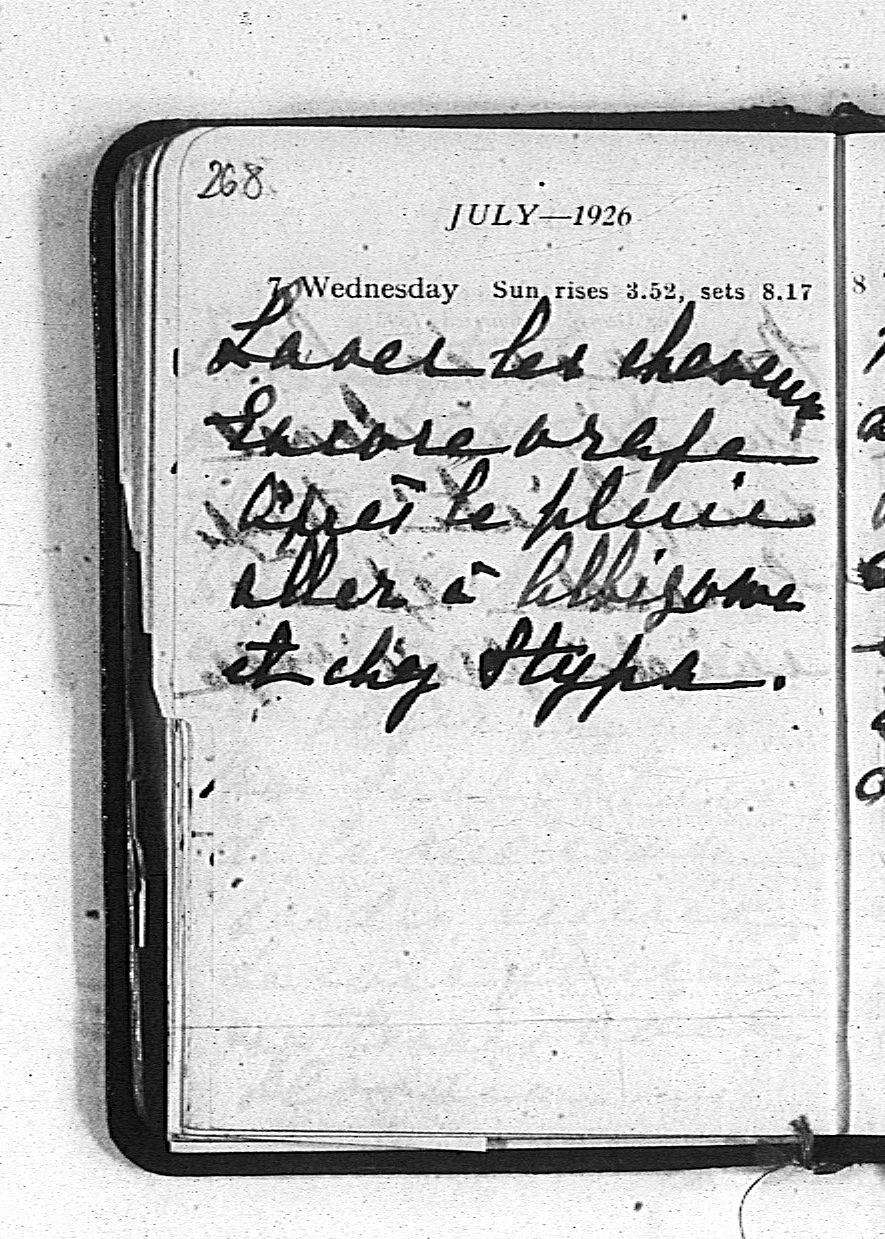 268
JULY—1926
7 Wednesday Sun rises 3.52, sets 8.17
8
Laver les cheveux
Encore orage
Après le pluie
aller à
et chez Styps.